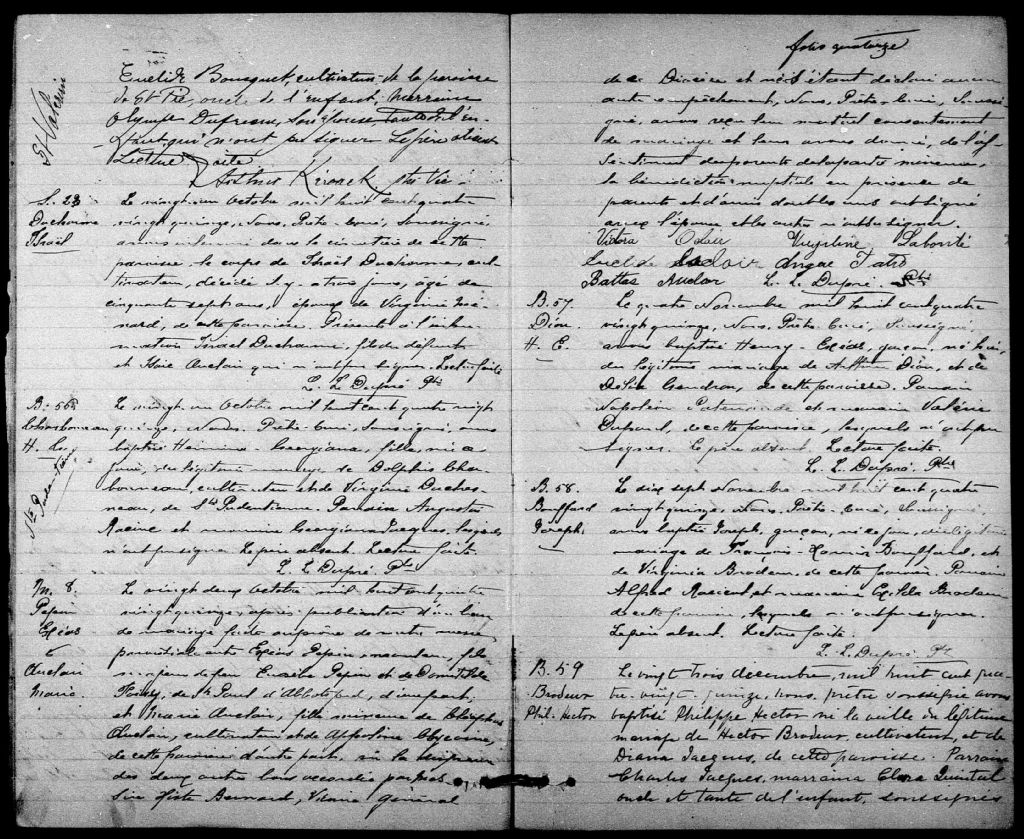 St Valérien
Euclide Bousquet, cultivateur de la paroisse
de St Pie, oncle de l'enfant, marraine
Olympe Dufresne, son épouse,
qui n'ont pu signer. Le père absent
Lecture faite
Arthur Kérouack Ptre Vic
S. 23
Ducharme
Israël
Le vingt-un Octobre mil huit cent quatre
vingt quinze, Nous, Prêtre-Curé, soussigné,
avons inhumé dans le cimetière de cette
paroisse, le corps de Israël Ducharme, cul-
tivateur, décédé il y a trois jours, âgé de
cinquante sept ans, époux de Virginie Mé-
nard, de cette paroisse. Présents à l'inhu-
mation Israel Ducharme, fils du défunt
et Auclair qui n'ont pu signer. Lecture faite
L. L. Dupré Ptr
B. 56
Charbonneau
H. G.
Ste Pudentienne
Le vingt-un Octobre mil huit cent quatre vingt
quinze, Nous, Prêtre-Curé, soussigné, avons
baptisé Georgiana, fille, née
du légitime mariage de Dolphis Char-
bonneau, cultivateur et de Virginie Duches-
neau, de Ste Pudentienne. Parrain Auguste
Racine et marraine Georgiana Jacques, lesquels
n'ont pu signer. Le père absent. Lecture faite.
L. L. Dupré Ptr
M. 8.
Pepin
Exéas
&
Auclair
Marie
Le vingt deux Octobre mil huit cent quatre
vingt quinze, après publication d'un ban
de mariage faite au prône de notre messe
paroissiale entre Exéas Pepin, fils
majeur de feu Eusèbe Pepin et de Domitilde
de St Paul d'Abbotsford, d'une part,
et Marie Auclair, fille mineure de
Auclair, cultivateur et de Appoline
de cette paroisse d'autre part, vu la dispense
des deux autres bans accordée par
Bernard, Vicaire Général
folio quatorze
de ce Diocèse et ne s'étant déclaré aucun
autre empêchement, Nous, Prêtre-Curé, soussi-
gné, avons reçu leur mutuel consentement
de mariage et leur avons donné, de l'as-
sentiment des parents de la partie mineure
la bénédiction nuptiale en présence de
parents et d'amis dont les uns ont signé
avec l'épouse et les autres n'ont su signer.
Victora Oclair Virgiline Labonté
Euclide Ocloir Angae Tatro
Battas Auclar L. L. Dupré. Ptr
B. 57
Dion
H. E.
Le quatre Novembre mil huit cent quatre
vingt quinze, Nous, Prêtre-Curé, soussigné,
avons baptisé Henry-Exéas, garçon, né hier,
du légitime mariage de Arthur Dion, et de
Délia Gendron, de cette paroisse. Parrain
Napoléon Patenaude et marraine Valérie
Dupard, de cette paroisse, lesquels n'ont pu
signer. Le père absent. Lecture faite.
L. L. Dupré, Ptr
B. 58.
Bouffard
Joseph
Le dix sept Novembre mil huit cent quatre
vingt quinze, Nous, Prêtre-Curé, soussigné,
avons baptisé Joseph, garçon, né ce jour, du légitime
mariage de François-Xavier Bouffard, et
de Virginia Brodeur, de cette paroisse. Parrain
Alfred Racicot et marraine Exilda Brodeur
de cette paroisse, lesquels n'ont pu signer.
Le père absent. Lecture faite.
L. L. Dupré Ptr
B. 59
Brodeur
Phil-Hector
Le vingt trois décembre, mil huit cent qua-
tre-vingt-quinze, nous, prêtre soussigné avons
baptisé Philippe Hector né la veille du légitime
mariage de Hector Brodeur, cultivateur, et de
Diana Jacques, de cette paroisse. Parrain
Charles Jacques, marraine Clara Quintal
oncle et tante de l'enfant, soussignés